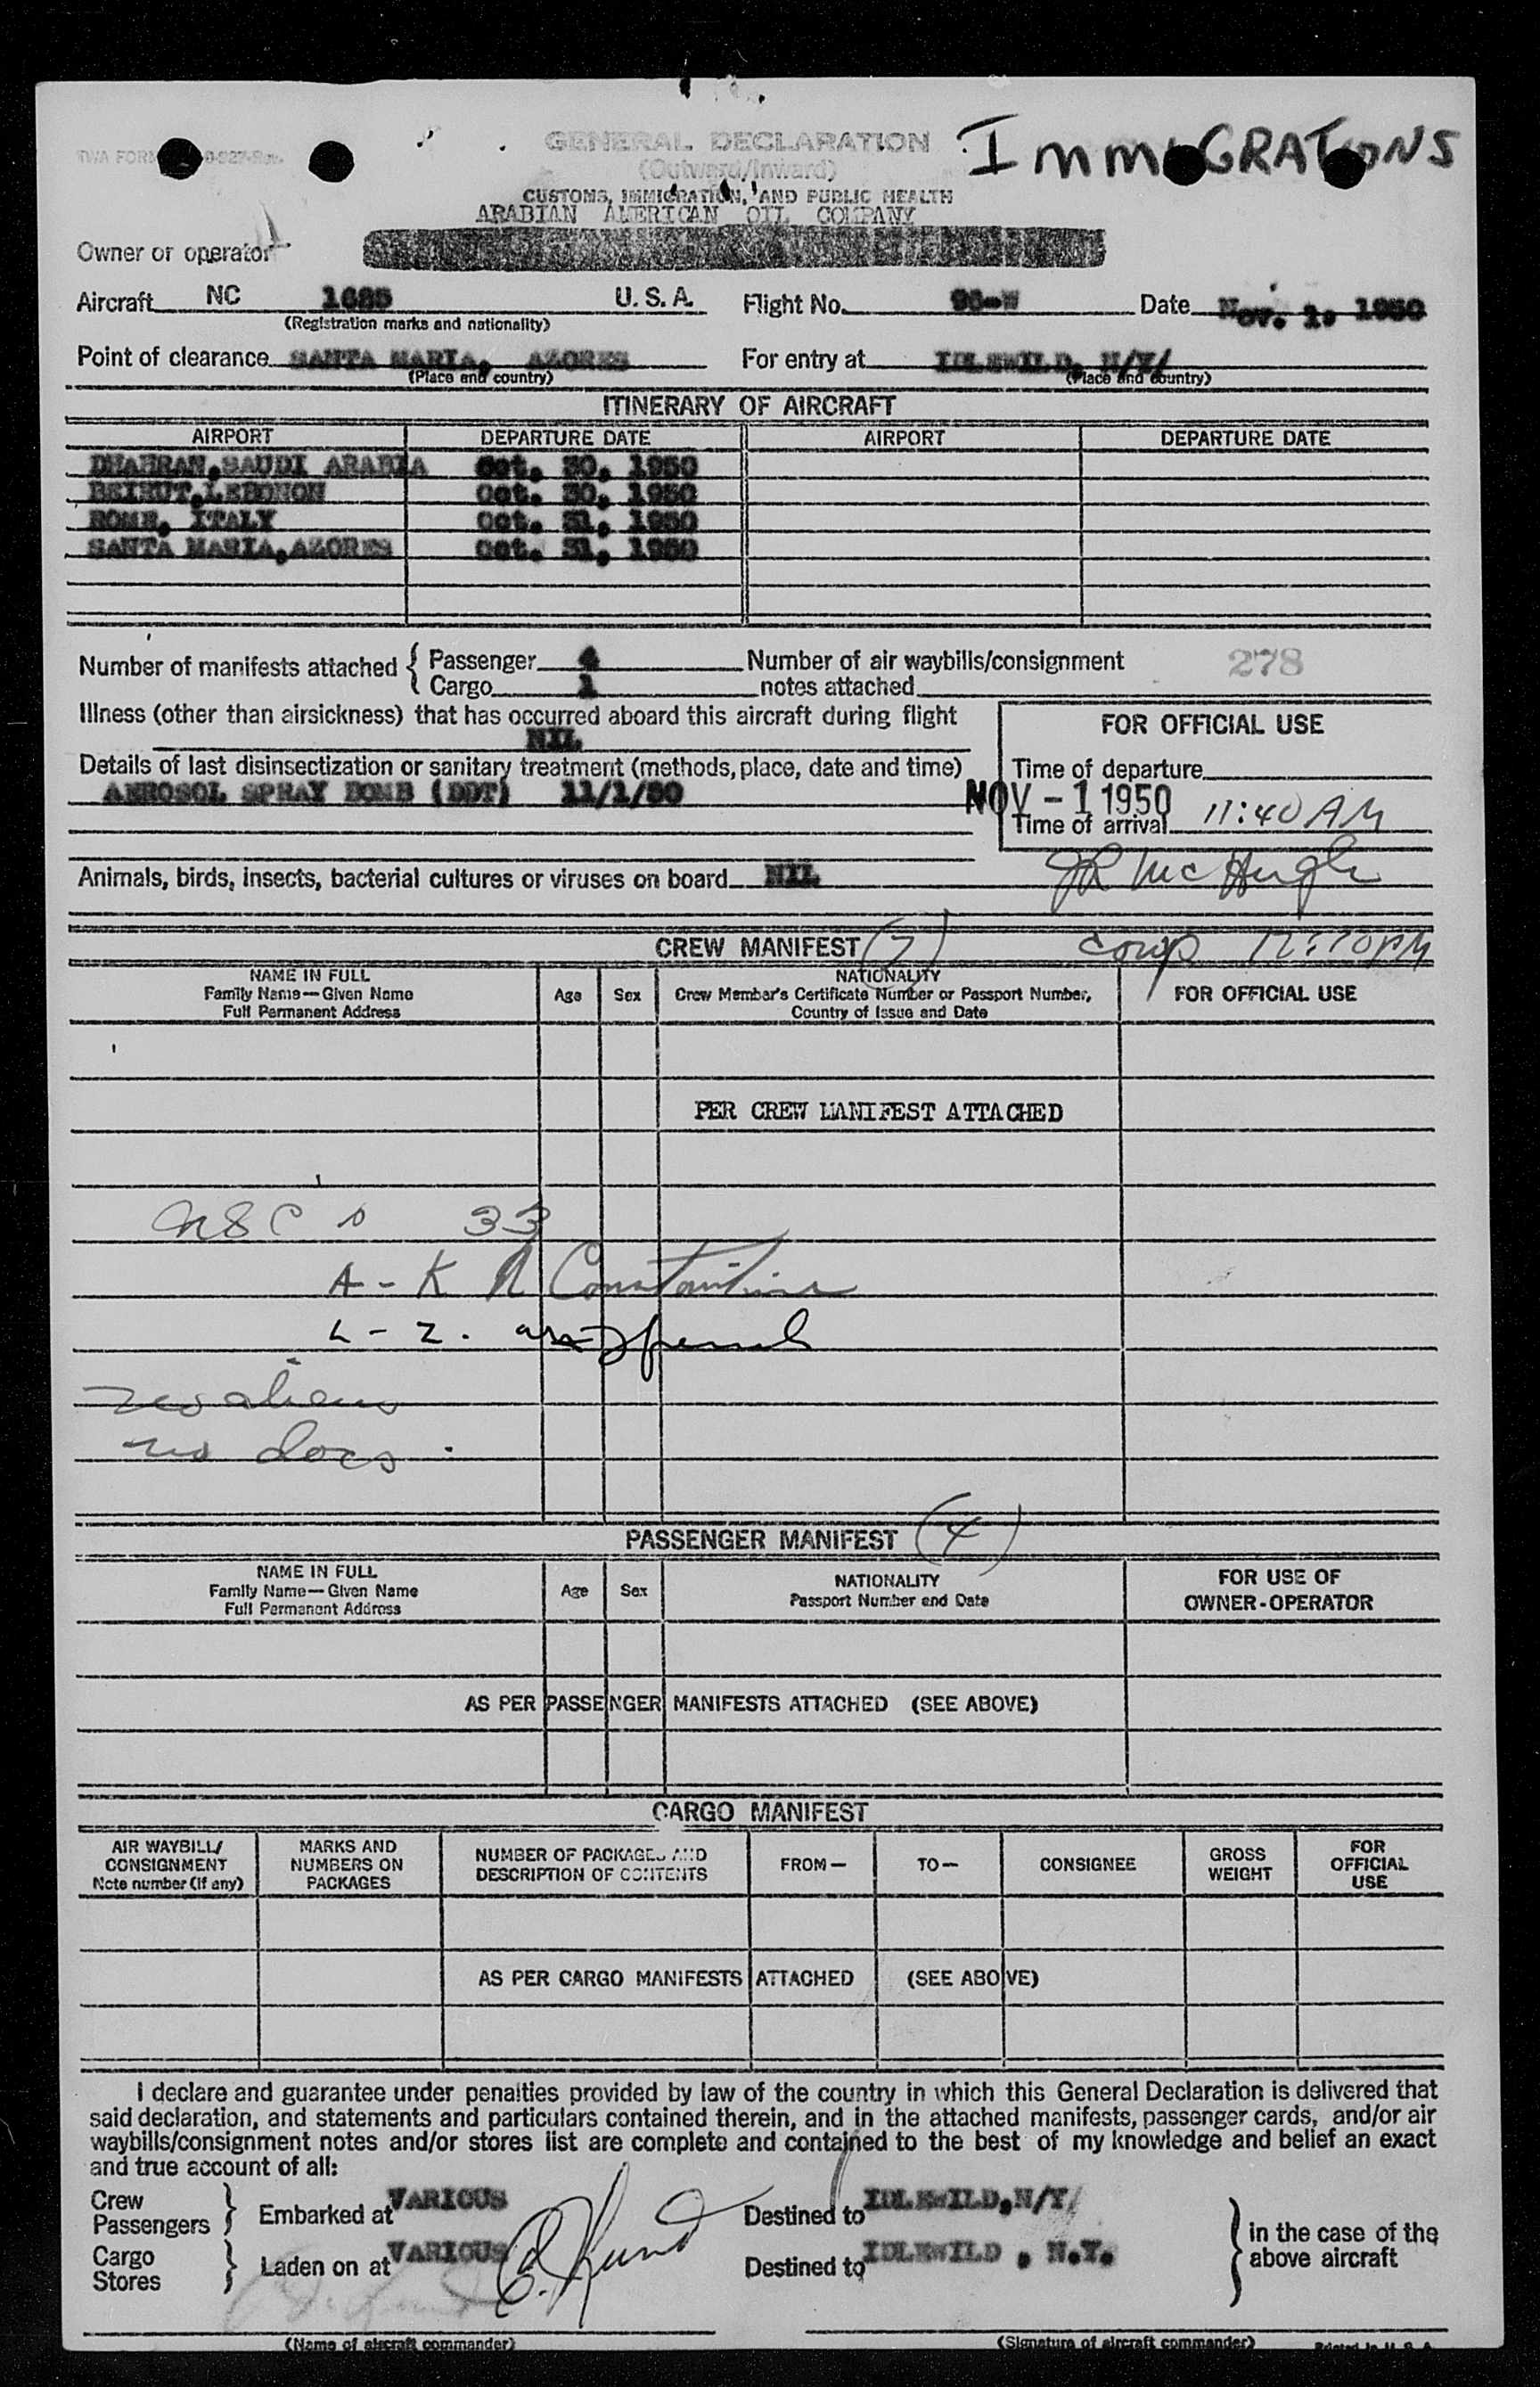 GENERAL DECLARATION
IMMIGRATIONS
TWA FORM
(Outward/Inward)
CUSTOMS, IMMIGRATION, AND PUBLIC HEALTH
ARABIAN AMERICAN OIL COMPANY
Owner or operator
Aircraft NC 1625 U.S.A. Flight No. Date Nov. 1, 1950
(Registration marks and nationality)
Point of clearance SANTA MARIA, AZORES For entry at IDLEWILD, N/Y/
(Place and country) (Place and country)
ITINERARY OF AIRCRAFT
AIRPORT DEPARTURE DATE AIRPORT DEPARTURE DATE
DHAHRAN, SAUDI ARABIA Oct. 30, 1950
BEIRUT, LEBONON Oct. 30, 1950
ROME, ITALY Oct. 31, 1950
SANTA MARIA, AZORES Oct. 31, 1950
Number of manifests attached { Passenger 4 Number of air waybills/consignment 278
Cargo 1 notes attached
Illness (other than airsickness) that has occurred aboard this aircraft during flight
NIL
FOR OFFICIAL USE
Details of last disinsectization or sanitary treatment (methods, place, date and time)
Time of departure
AEROSOL SPRAY BOMB (DDT) 11/1/50
NOV - 1 1950
Time of arrival 11:40 AM
JR McHugh
Animals, birds, insects, bacterial cultures or viruses on board NIL
CREW MANIFEST (7) comp PM
NAME IN FULL
Family Name—Given Name
Full Permanent Address
Age Sex
NATIONALITY
Crew Member's Certificate Number or Passport Number,
Country of Issue and Date
FOR OFFICIAL USE
PER CREW MANIFEST ATTACHED
USC s 33
A - K R Constantine
L - Z.
no aliens
no docs.
PASSENGER MANIFEST (4)
NAME IN FULL
Family Name—Given Name
Full Permanent Address
Age Sex
NATIONALITY
Passport Number and Date
FOR USE OF
OWNER-OPERATOR
AS PER PASSENGER MANIFESTS ATTACHED (SEE ABOVE)
CARGO MANIFEST
AIR WAYBILL/
CONSIGNMENT
Note number (if any)
MARKS AND
NUMBERS ON
PACKAGES
NUMBER OF PACKAGES AND
DESCRIPTION OF CONTENTS
FROM—
TO—
CONSIGNEE
GROSS
WEIGHT
FOR
OFFICIAL
USE
AS PER CARGO MANIFESTS ATTACHED (SEE ABOVE)
I declare and guarantee under penalties provided by law of the country in which this General Declaration is delivered that
said declaration, and statements and particulars contained therein, and in the attached manifests, passenger cards, and/or air
waybills/consignment notes and/or stores list are complete and contained to the best of my knowledge and belief an exact
and true account of all:
Crew
Passengers } Embarked at VARIOUS Destined to IDLEWILD, N/Y/
Cargo
Stores } Laden on at VARIOUS Destined to IDLEWILD , N.Y.
} in the case of the
above aircraft
(Name of aircraft commander) (Signature of aircraft commander) Printed in U. S. A.